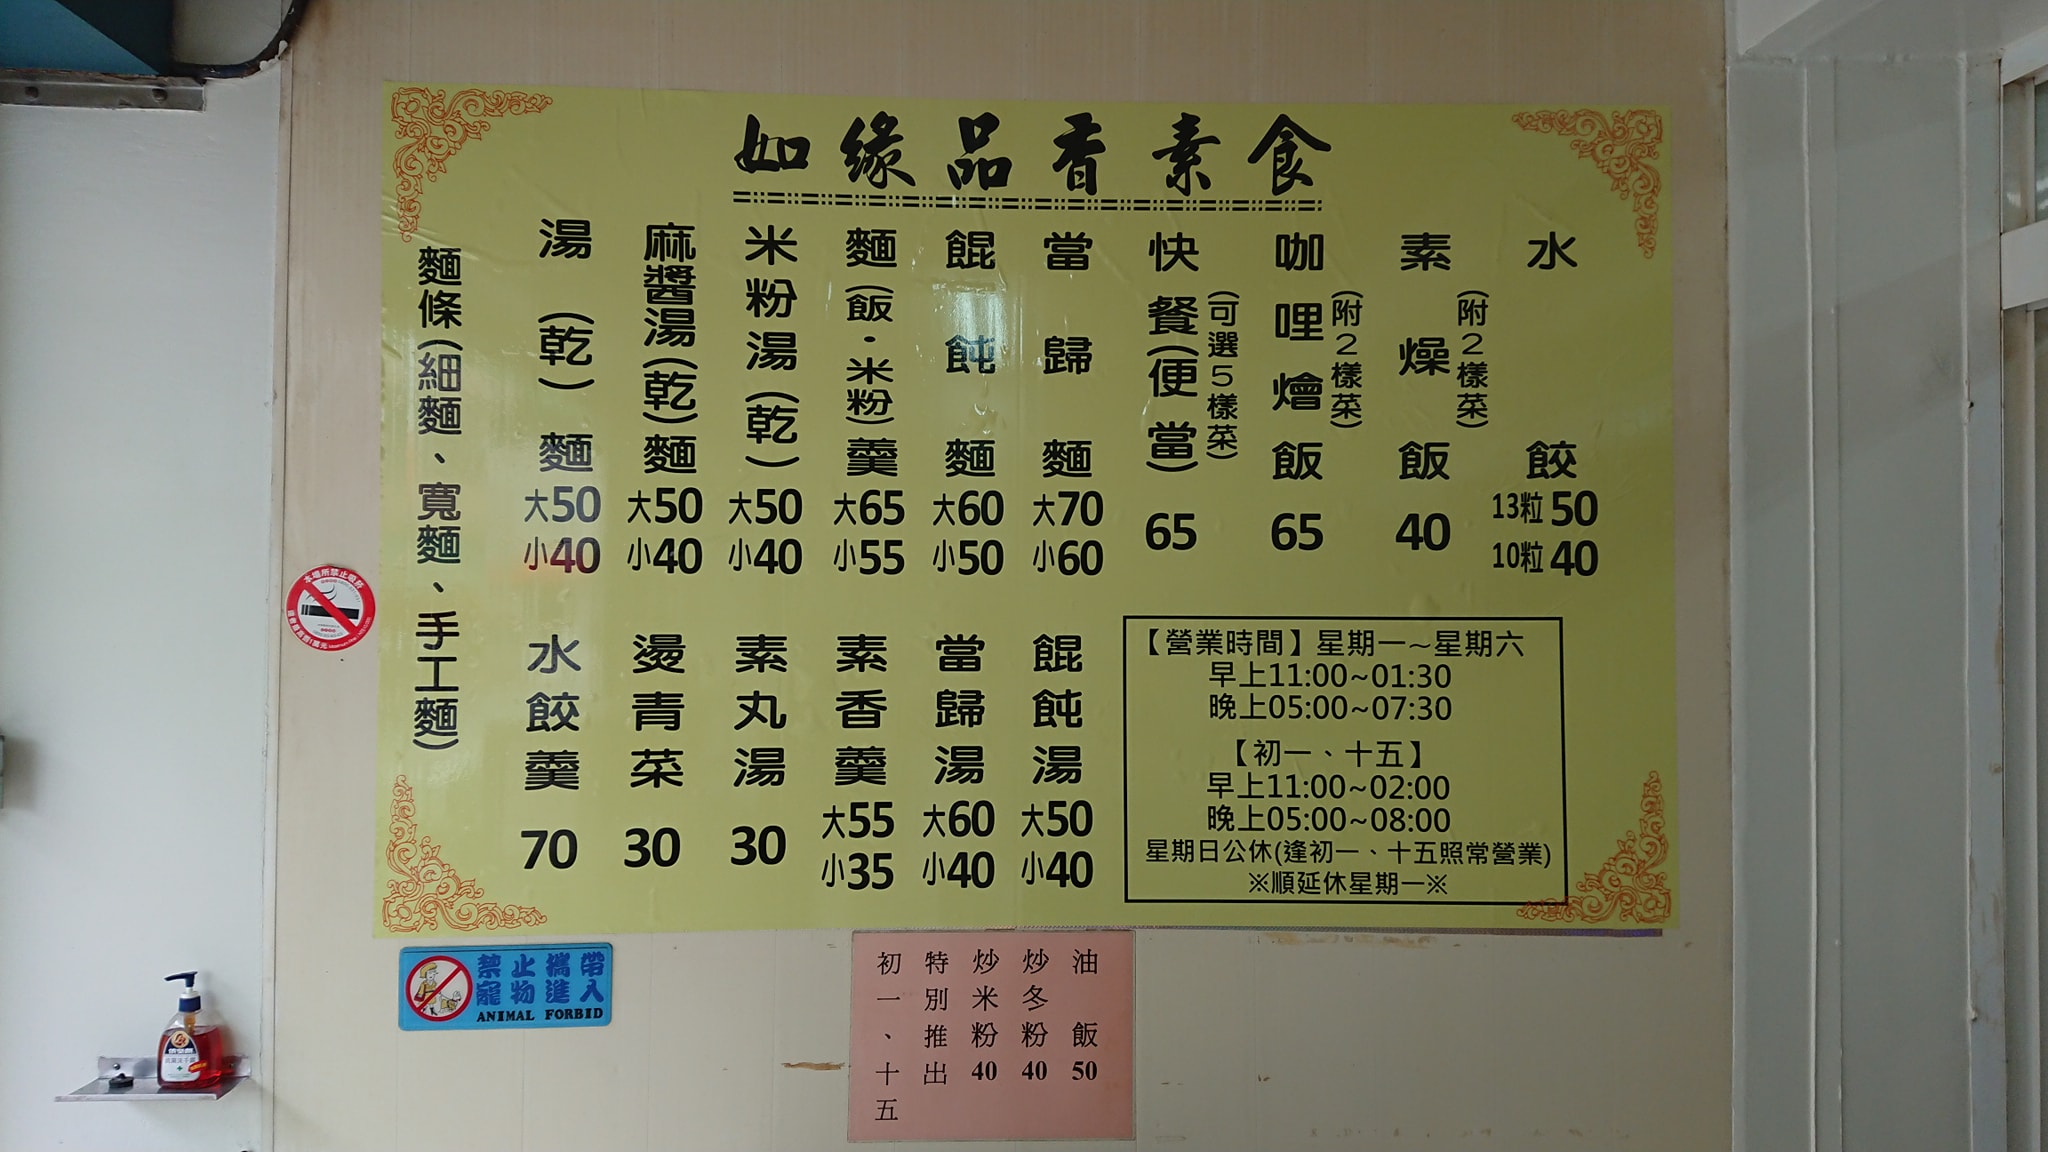 如緣品香素食
麵條(細麵、寬麵、手工麵)
湯(乾)麵 大50 小40
麻醬湯(乾)麵 大50 小40
米粉湯(乾) 大50 小40
麵(飯·米粉)羹 大65 小55
餛飩麵 大60 小50
當歸麵 大70 小60
快餐(便當) (可選5樣菜) 65
咖哩燴飯 (附2樣菜) 65
素燥飯 (附2樣菜) 40
水餃 13粒50 10粒40
水餃羹 70
燙青菜 30
素丸湯 30
素香羹 大55 小35
當歸湯 大60 小40
餛飩湯 大50 小40
【營業時間】星期一~星期六
早上11:00~01:30
晚上05:00~07:30
【初一、十五】
早上11:00~02:00
晚上05:00~08:00
星期日公休(逢初一、十五照常營業)
※順延休星期一※
本場所禁止吸菸
禁止攜帶
寵物進入
ANIMAL FORBID
初一、十五
特別推出
炒米粉 40
炒冬粉 40
油飯 50